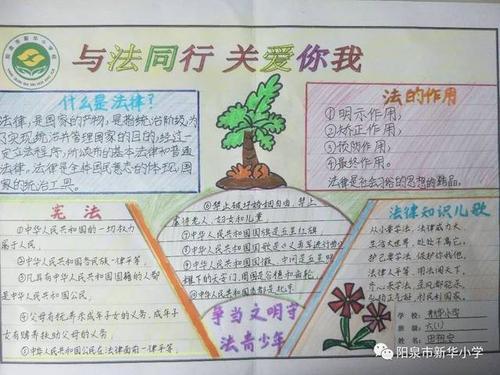 阳泉市新华小学校
与法同行 关爱你我
什么是法律?
法律,是国家的产物,是指统治阶级为
了实现统治并管理国家的目的,经过一
定立法程序,所颁布的基本法律和普通
法律。法律是全体国民意志的体现,国
家的统治工具。
法的作用
①明示作用,
②矫正作用,
③预防作用,
④最终作用。
法律是社会习俗的思想的结晶。
宪法
①中华人民共和国的一切权力
属于人民。
②中华人民共和国各民族一律平等。
③凡具有中华人民共和国国籍的人都
是中华人民共和国公民。
④父母有抚养未成年子女的义务,成年子
女有赡养扶助父母的义务。
⑤中华人民共和国公民在法律面前一律平等。
⑥禁止破坏婚姻自由,禁止
虐待老人、妇女和儿童。
⑦中华人民共和国国旗是五星红旗。
⑧中华人民共和国国歌是《义勇军进行曲》
⑨中华人民共和国国徽,中间是五星照
耀下的天安门,周围是谷穗和齿轮。
⑩中华人民共和国首都是北京
争当文明守
法青少年
法律知识儿歌
从小学法,法律威力大,
生活大世界,处处不离它。
法律人人平等,用法闯天下,
学校:新华小学
班级:六(1)
姓名:
阳泉市新华小学